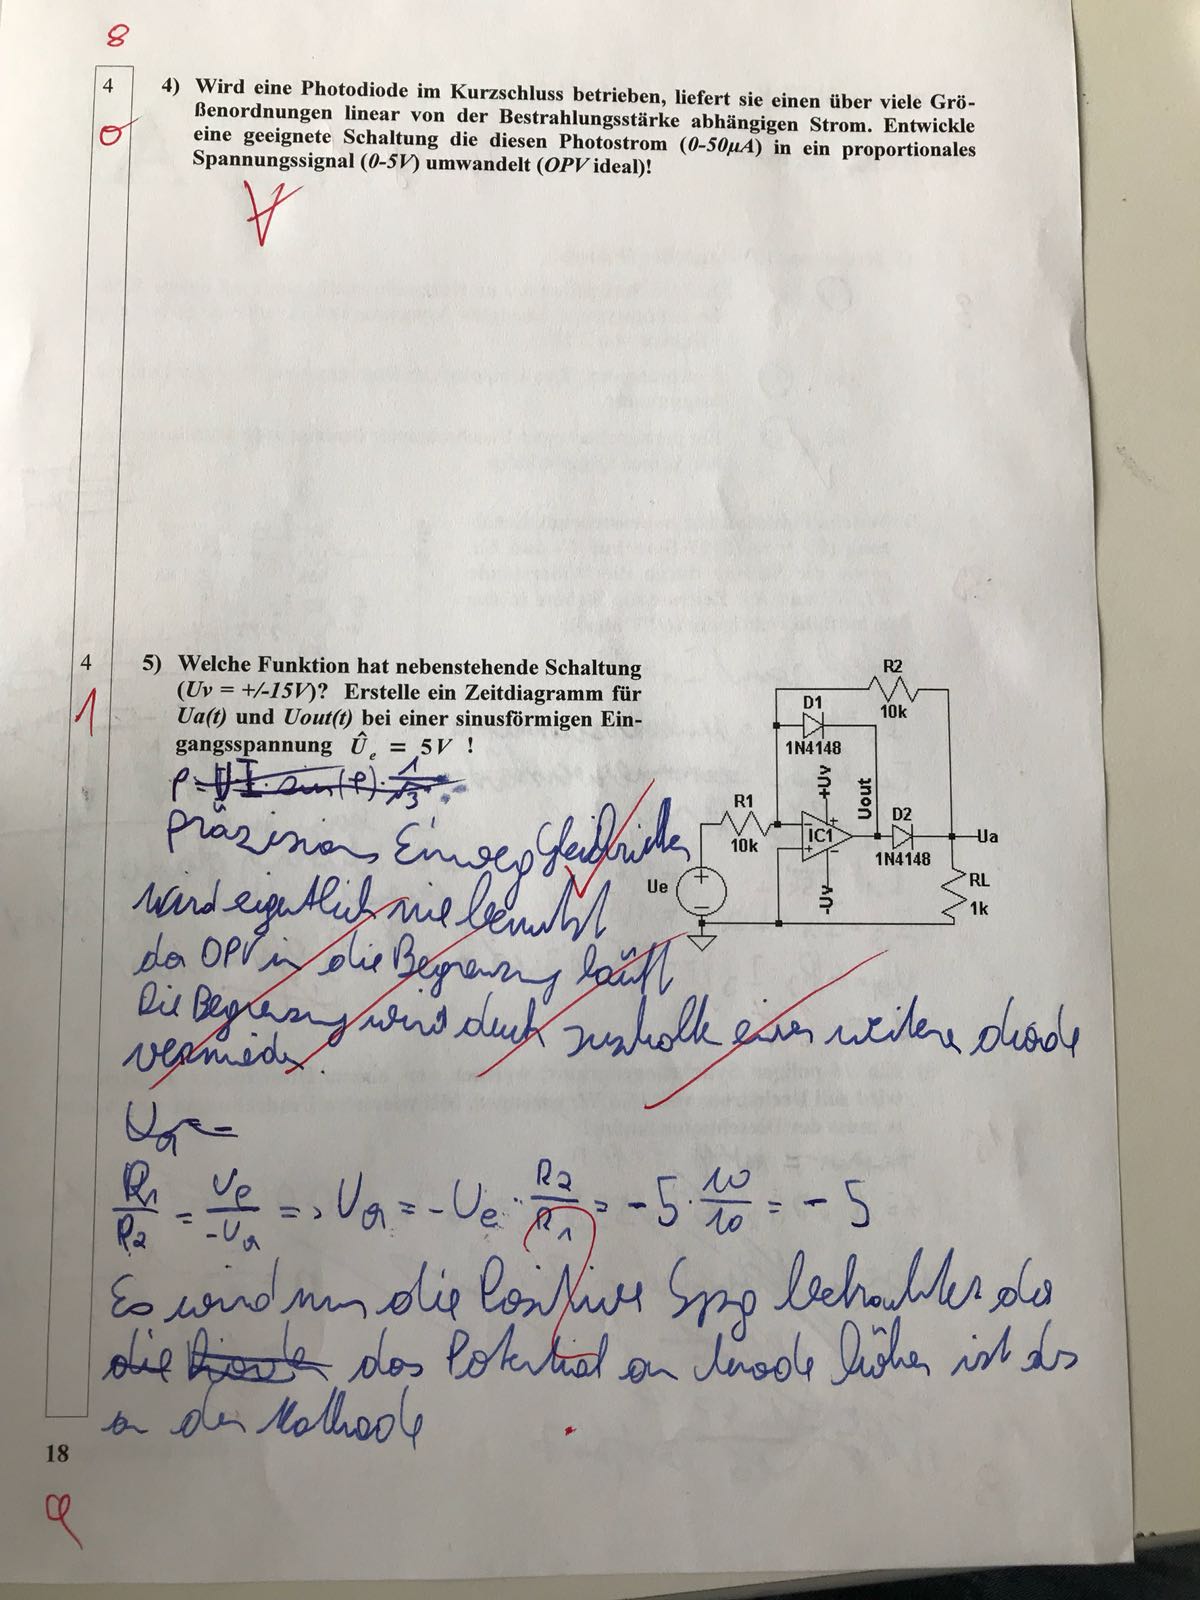 8
4
0
4) Wird eine Photodiode im Kurzschluss betrieben, liefert sie einen über viele Grö-
ßenordnungen linear von der Bestrahlungsstärke abhängigen Strom. Entwickle
eine geeignete Schaltung die diesen Photostrom (0-50µA) in ein proportionales
Spannungssignal (0-5V) umwandelt (OPV ideal)!
4
1
5) Welche Funktion hat nebenstehende Schaltung
(Uv = +/-15V)? Erstelle ein Zeitdiagramm für
Ua(t) und Uout(t) bei einer sinusförmigen Ein-
gangsspannung Û_e = 5V !
R2
10k
D1
1N4148
+Uv
Uout
R1
10k
IC1
D2
1N4148
Ua
Ue
-Uv
RL
1k
Präzisions Einweg Gleichrichter
wird eigentlich nie benutzt
da OPV in die Begrenzung läuft
Die Begrenzung wird durch zuschalten einer weiteren diode
vermieden.
Ua =
R1/R2 = Ue/-Ua => Ua = -Ue · R2/R1 = -5 · 10/10 = -5
Es wird nur die Positive Spg betrachtet da
die Diode das Potential an Anode höher ist als
an der Kathode
18
9